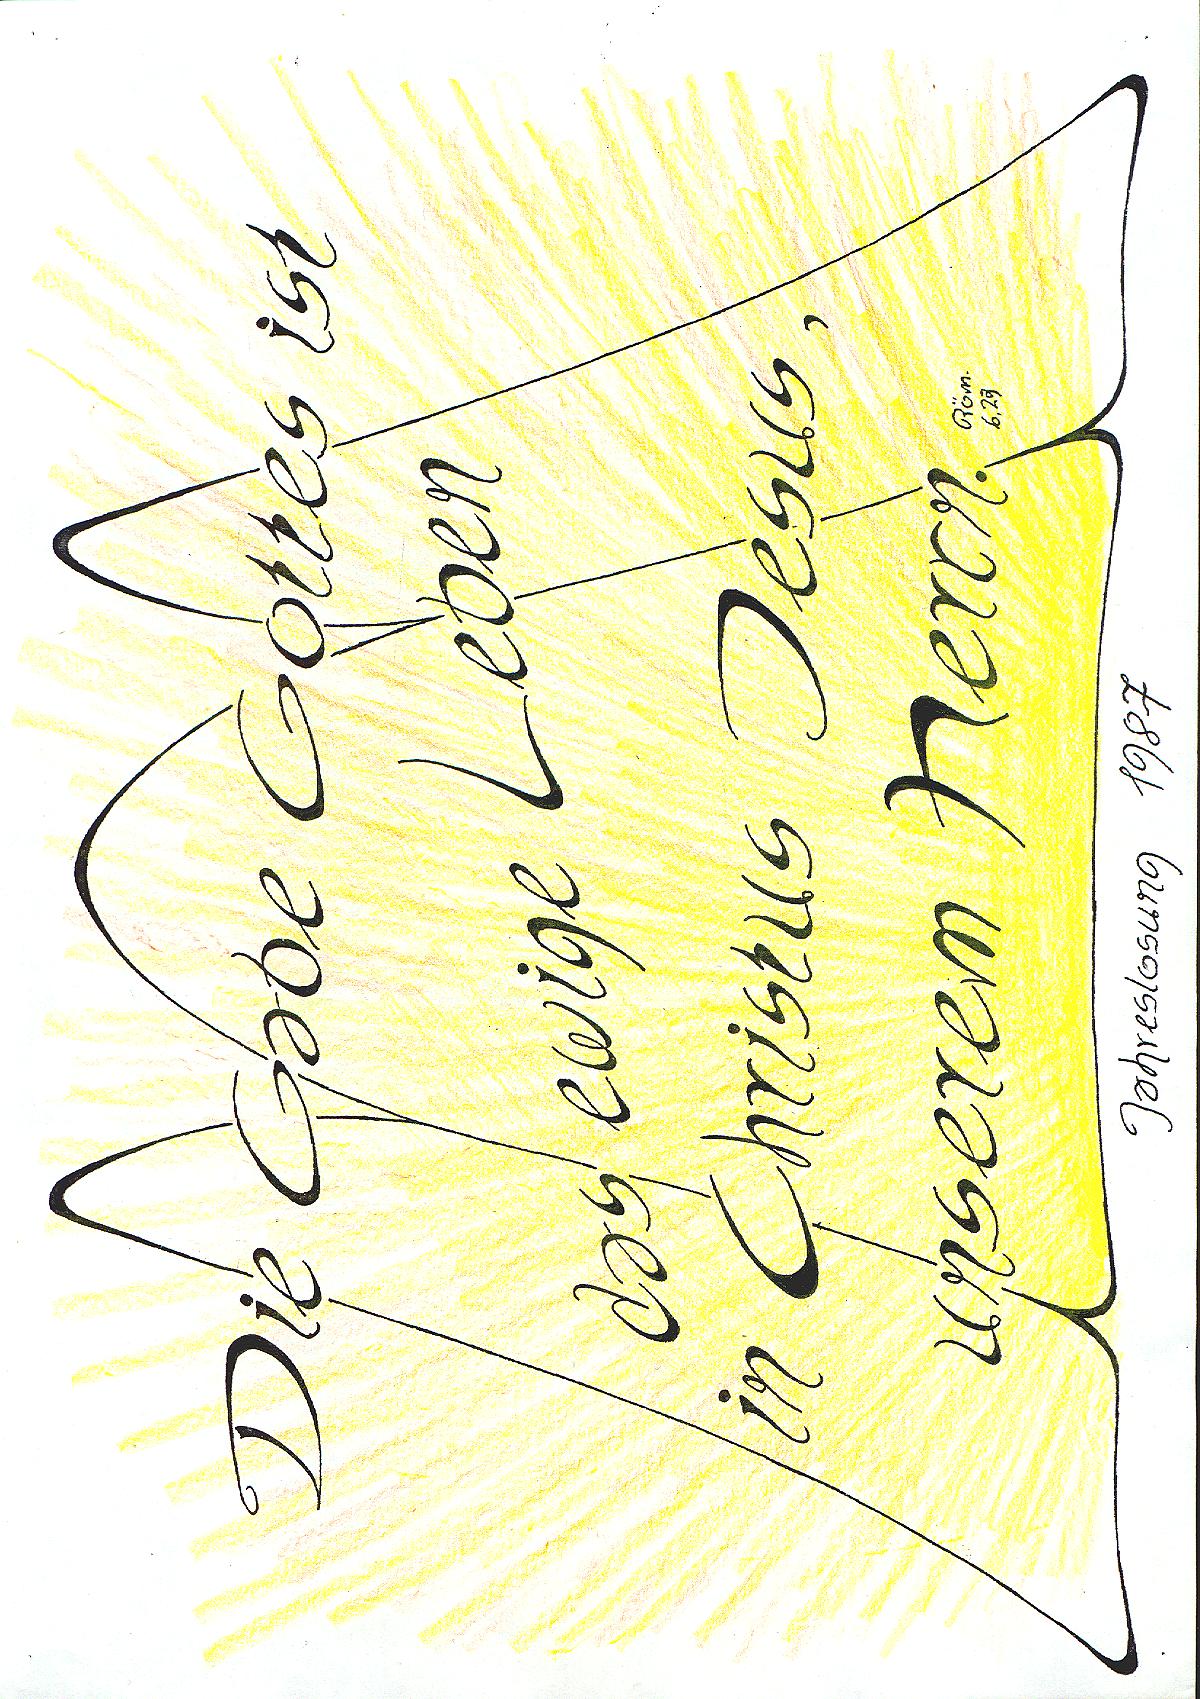 Die Gabe Gottes ist
das ewige Leben
in Christus Jesus,
unserem Herrn.
Röm.
6,23
Jahreslosung 1987